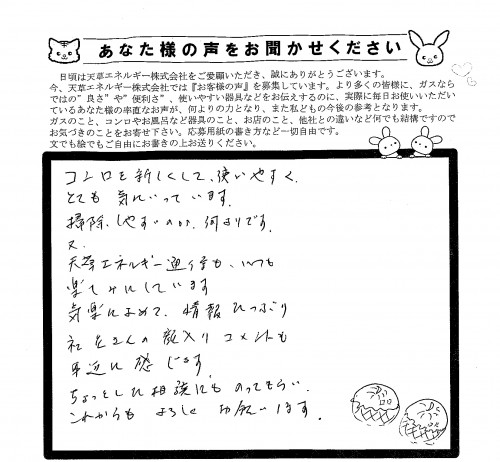 あなた様の声をお聞かせください
日頃は天草エネルギー株式会社をご愛顧いただき、誠にありがとうございます。
今、天草エネルギー株式会社では『お客様の声』を募集しています。より多くの皆様に、ガスなら
ではの”良さ”や”便利さ”、使いやすい器具などをお伝えするのに、実際に毎日お使いいただい
ているあなた様の率直なお声が、何よりの力となり、また私どもの今後の参考となります。
ガスのこと、コンロやお風呂など器具のこと、お店のこと、他社との違いなど何でも結構ですので
お気づきのことをお寄せ下さい。応募用紙の書き方など一切自由です。
文でも絵でもご自由にお書きの上お送りください。
コンロを新しくして、使いやすく、
とても気にいっています。
掃除しやすいのが、何よりです。
又、
天草エネルギー通信も、いつも
楽しみにしています
気楽によめて、情報たっぷり
社員さんの顔入りコメントも
身近に感じます。
ちょっとした相談にものってもらい、
これからもよろしくお願いします。